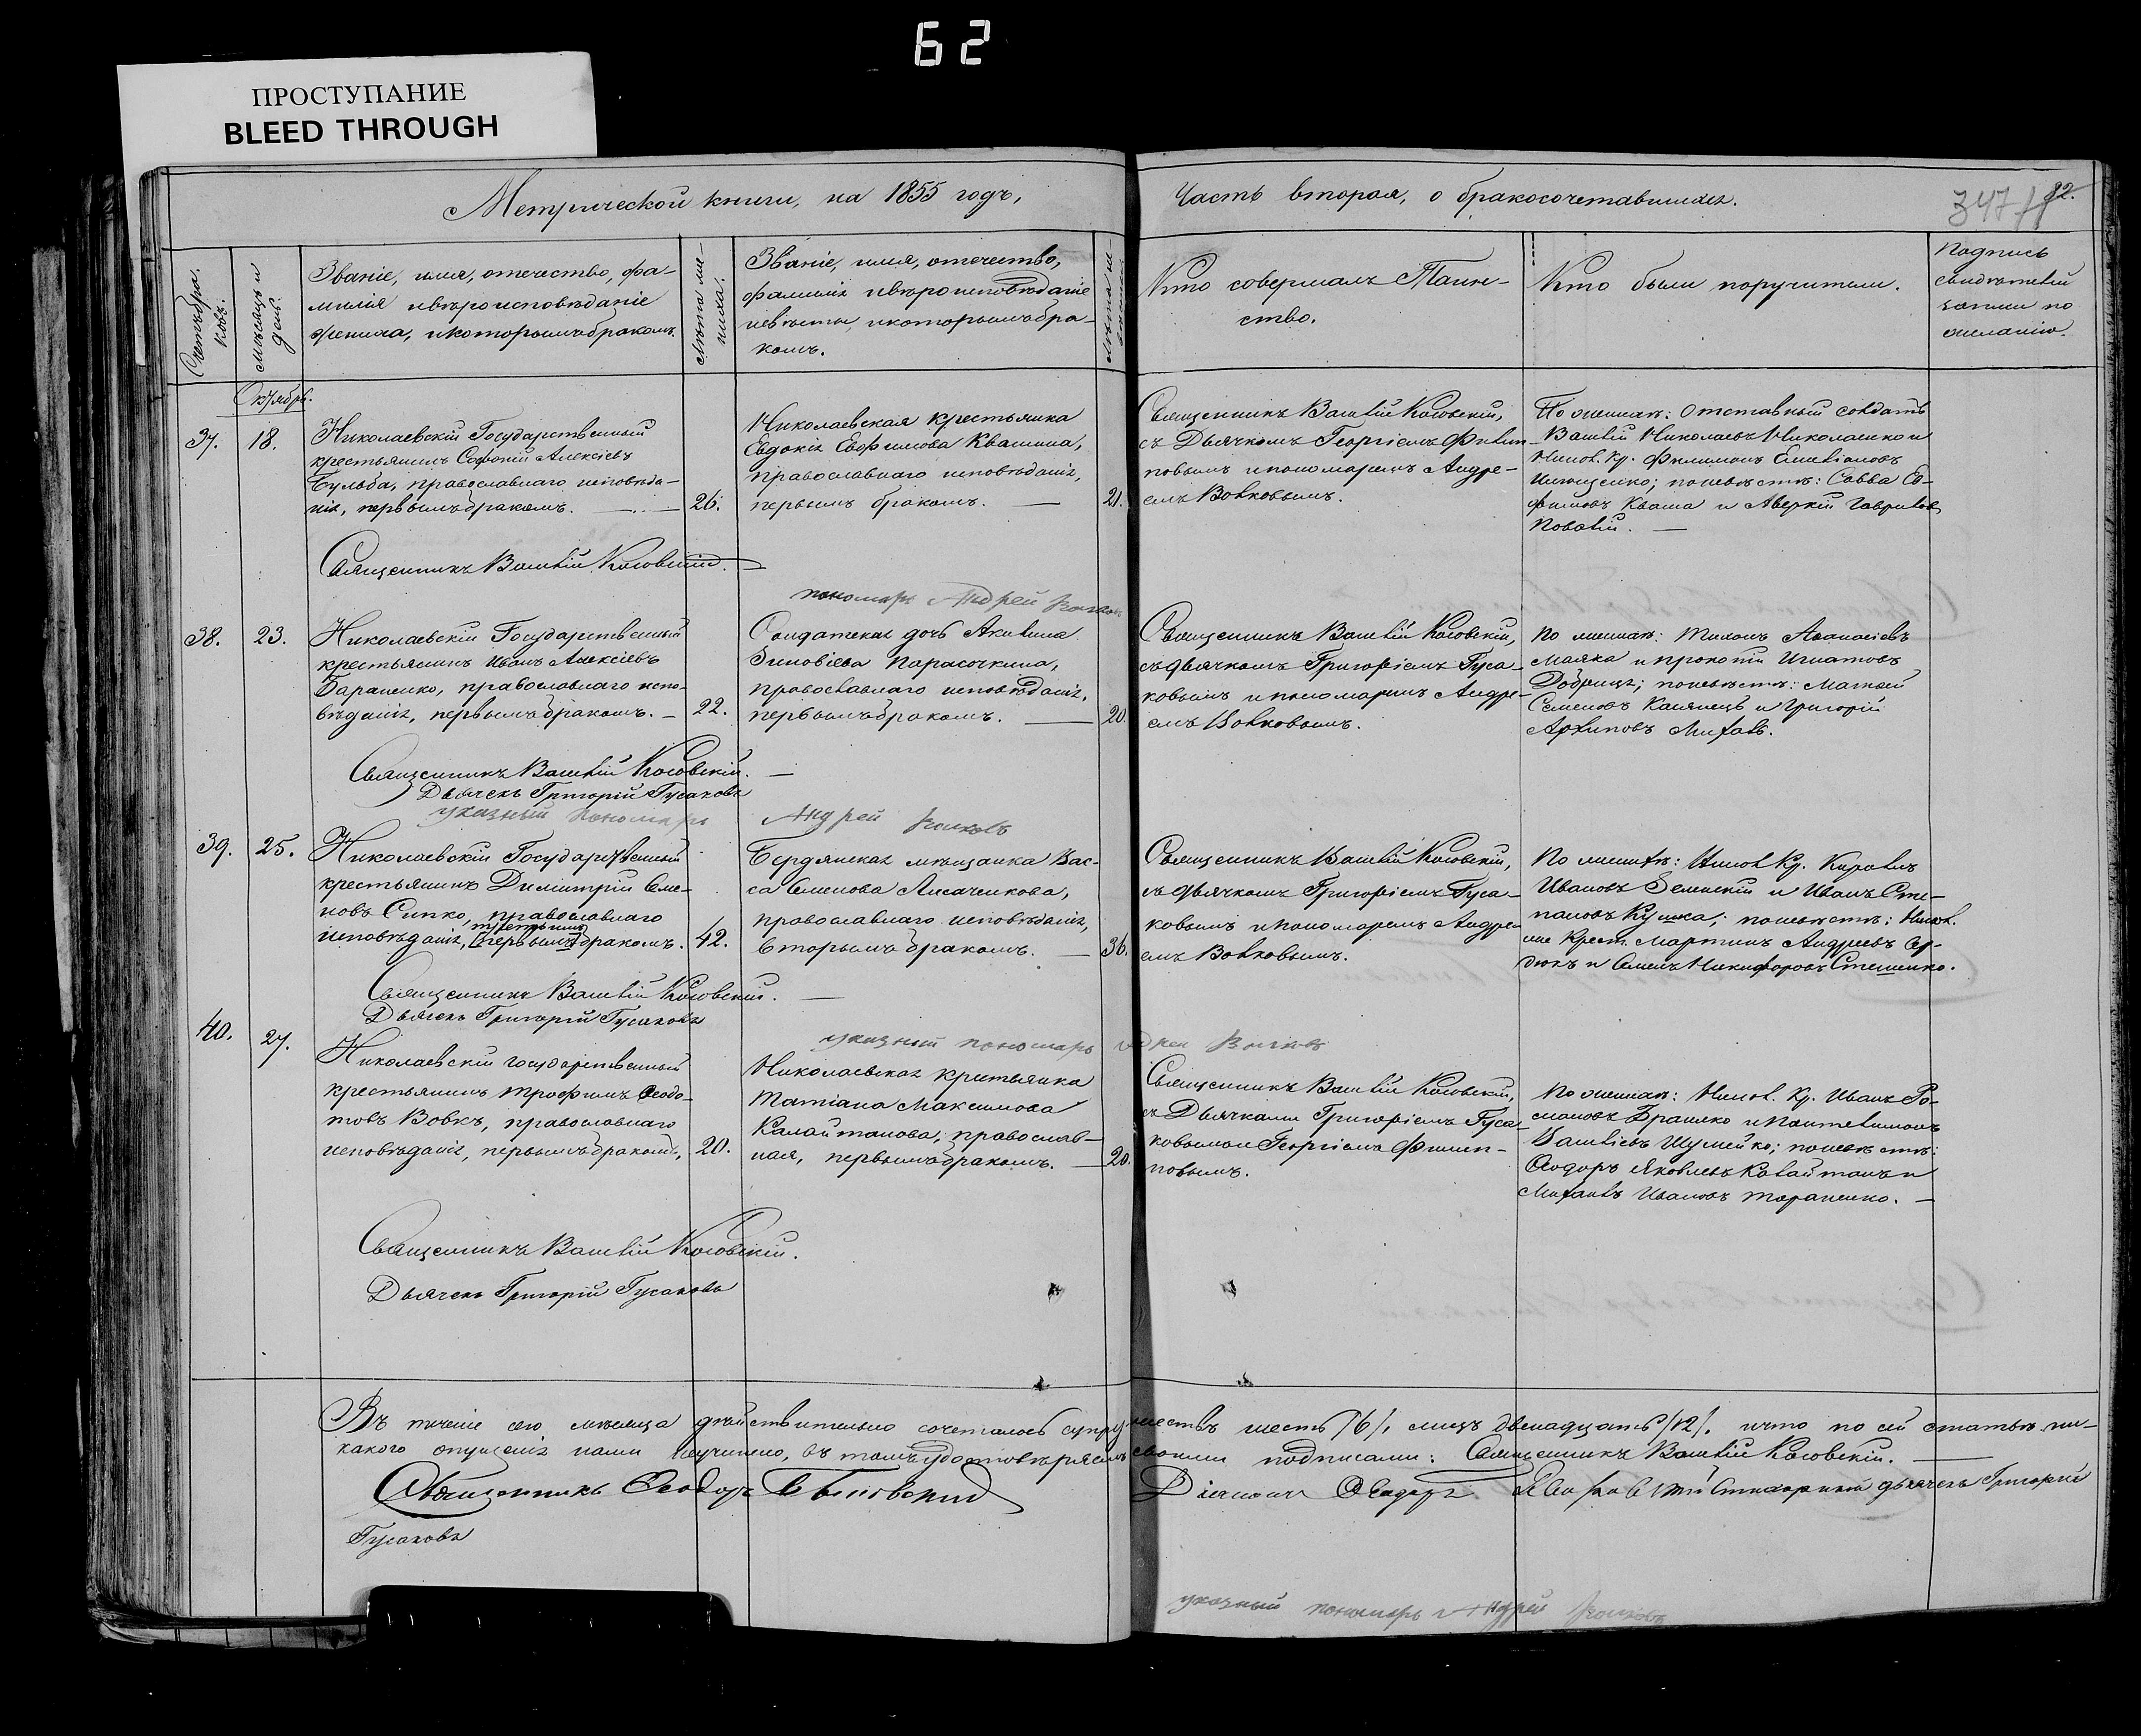 62
ПРОСТУПАНИЕ
BLEED THROUGH
Метрической книги, на 1855 годъ,
Часть вторая, о бракосочетавшихся.
347
82.
Счетъ бра-
ковъ.
Мѣсяцъ и
день.
Званіе, имя, отечество, фа-
милія и вѣроисповѣданіе
жениха, и которымъ бракомъ.
Лѣта же-
ниха.
Званіе, имя, отечество,
фамилія и вѣроисповѣданіе
невѣсты, и которымъ бра-
комъ.
Лѣта не-
Кто совершалъ Таин-
ство.
Кто были поручители.
Подпись
свидѣтелей
записи по
желанію.
Октябрь.
37.
18.
Николаевскій Государственный
крестьянинъ Софоній Алексіевъ
Бульба, православнаго исповѣда-
нія, первымъ бракомъ.
26.
Николаевская крестьянка
Евдокія Ефимова Квашина,
православнаго исповѣданія,
первымъ бракомъ.
21.
Священникъ Василій Косовскій,
съ Дьячкомъ Георгіемъ Филип-
повымъ и пономаремъ Андре-
емъ Волковымъ.
По женихѣ: отставный солдатъ
Василій Николаевъ Николаенко и
Никол. Кр. Филимонъ Емельяновъ
; по невѣстѣ: Савва Еф-
имовъ Кваша и Аверкій Гавриловъ
Повалій.
Священникъ Василій Косовскій.
пономарь Андрей Волковъ
38.
23.
Николаевскій Государственный
крестьянинъ Иванъ Алексіевъ
Бараненко, православнаго испо-
вѣданія, первымъ бракомъ.
22.
Солдатская дочь Акилина
Зиновіева Парасочкина,
православнаго исповѣданія,
первымъ бракомъ.
20.
Священникъ Василій Косовскій,
съ дьячкомъ Григоріемъ Гуса-
ковымъ и пономаремъ Андре-
емъ Волковымъ.
По женихѣ: Тихонъ Аѳанасіевъ
Маяка и Прокопій Игнатовъ
Добрица; по невѣстѣ: Матѳей
Семеновъ Канянецъ и Григорій
Архиповъ Михаль.
Священникъ Василій Косовскій.
Дьячекъ Григорій Гусаковъ
указный пономарь Андрей Волковъ
39.
25.
Николаевскій Государственный
крестьянинъ Димитрій Семе-
новъ Сипко, православнаго
третьимъ
исповѣданія, [первымъ] бракомъ.
42.
Бердянская мѣщанка Вас-
са Семенова Лисаченкова,
православнаго исповѣданія,
вторымъ бракомъ.
36.
Священникъ Василій Косовскій,
съ дьячкомъ Григоріемъ Гуса-
ковымъ и пономаремъ Андре
емъ Волковымъ.
По женихѣ: Никол Кр. Кирилъ
Ивановъ Зеленскій и Иванъ Сте-
пановъ Кушка; по невѣстѣ: Никол.
Крест. Мартинъ Андреевъ Сер-
дюкъ и Семенъ Никифоровъ Стешенко.
Священникъ Василій Косовскій.
Дьячекъ Григорій Гусаковъ
указный пономарь Андрей Волковъ
40.
27.
Николаевскій государственный
крестьянинъ Трофимъ Ѳеодо-
товъ Вовкъ, православнаго
исповѣданія, первымъ бракомъ,
20.
Николаевская крестьянка
Татіана Максимова
Калайтанова, православ-
ная, первымъ бракомъ.
20.
Священникъ Василій Косовскій,
съ Дьячками Григоріемъ Гуса-
ковымъ и Георгіемъ Филип-
повымъ.
По женихѣ: Никол. Кр. Иванъ Ро-
мановъ Брашко и Пантелимонъ
Василіевъ Шумейко; по невѣстѣ:
Ѳеодоръ Яковлевъ Калайтанъ и
Михаилъ Ивановъ Тараненко.
Священникъ Василій Косовскій.
Дьячекъ Григорій Гусаковъ
Въ теченіе сего мѣсяца дѣйствительно сочеталось супружествъ шесть /6/, лицъ двенадцать /12/. и что по сей статьѣ ни-
какого опущенія нами неучинено, въ томъ удостовѣряемъ своими подписами: Священникъ Василій Косовскій.
Священникъ Ѳеодоръ
Діаконъ Ѳеодоръ Стихарный дьячекъ Григорій
Гусаковъ
указный пономарь Андрей Волковъ